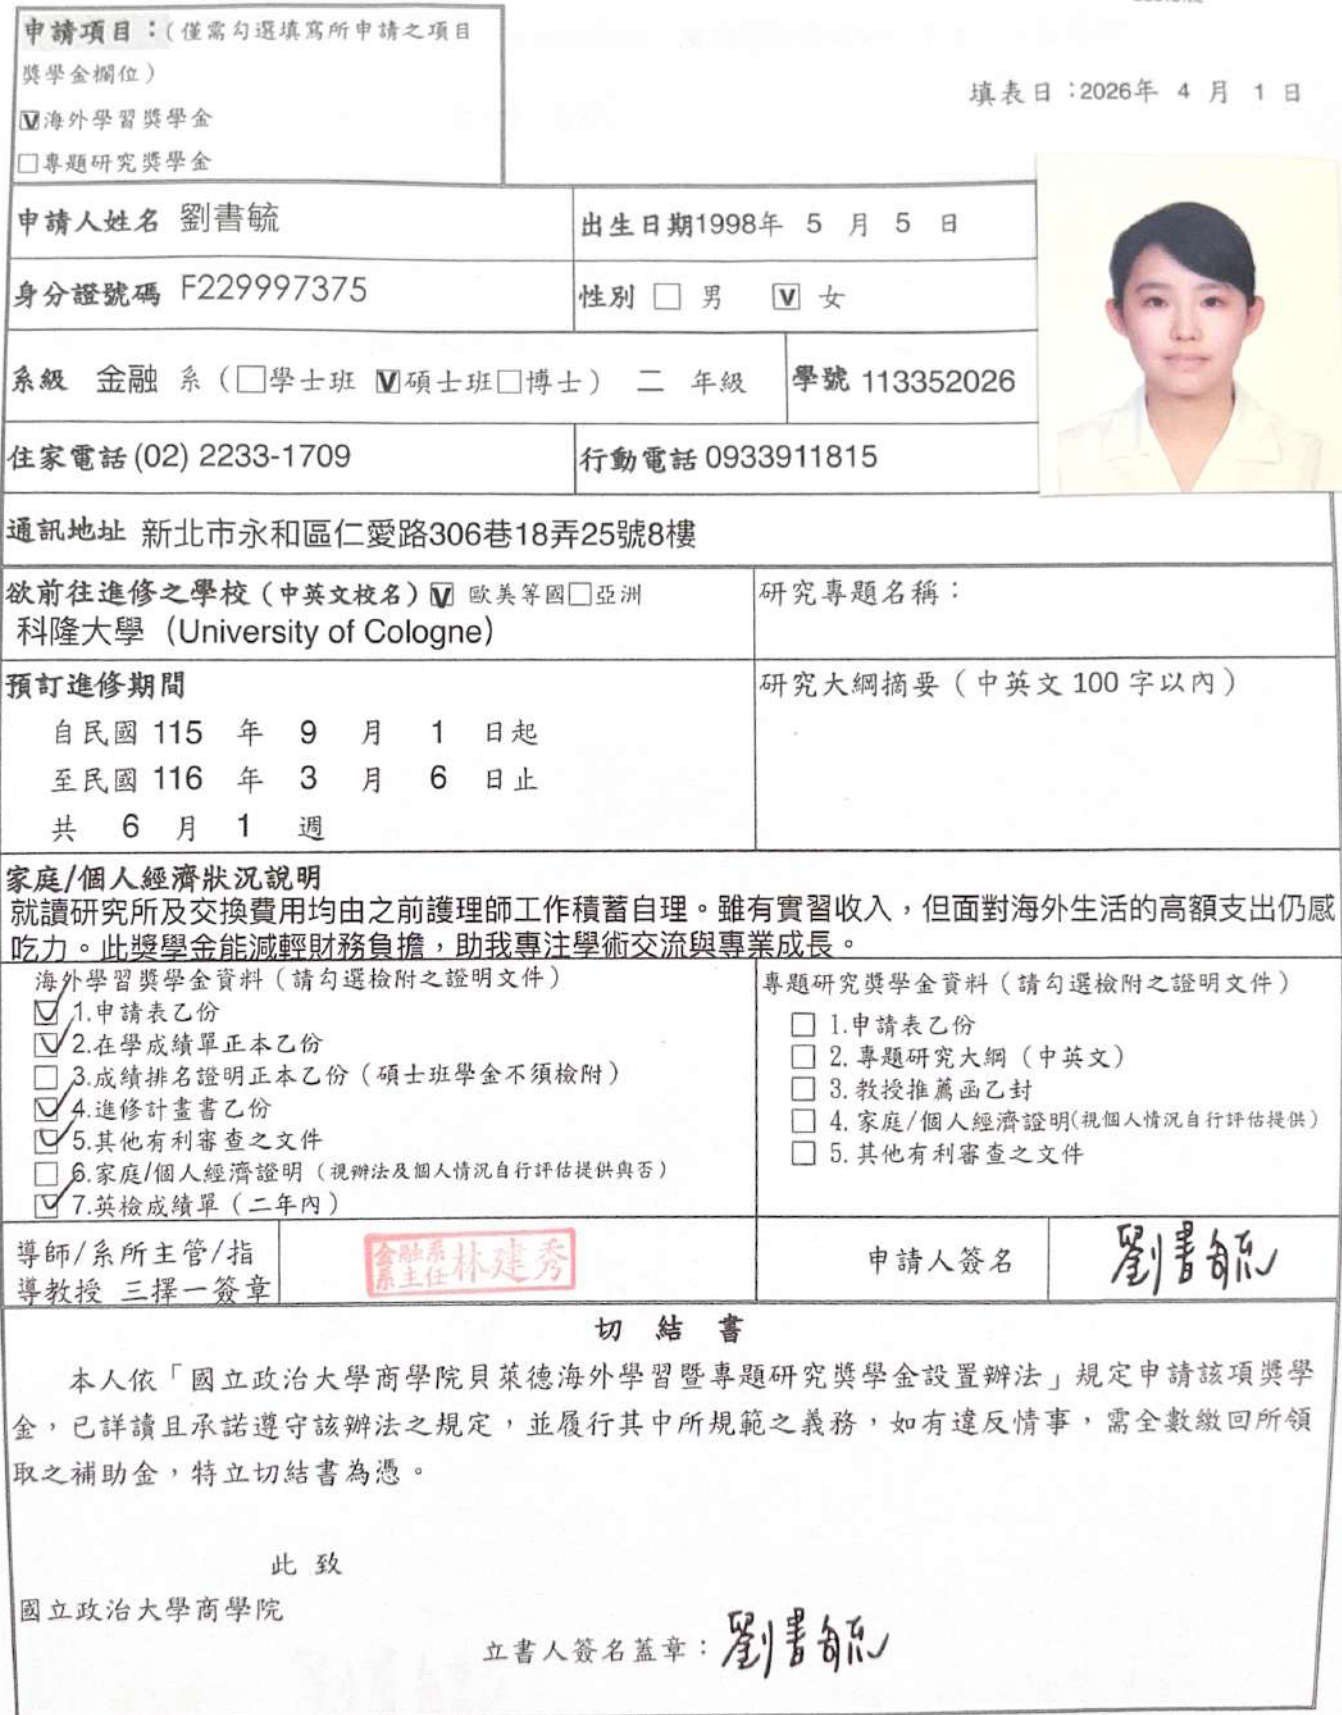 申請項目：(僅需勾選填寫所申請之項目
獎學金欄位）
填表日：2026年 4 月 1 日
V海外學習獎學金
□專題研究獎學金
申請人姓名 劉書毓
出生日期1998年 5 月 5 日
身分證號碼 F229997375
性別 □ 男 V 女
系級 金融 系（□學士班 V碩士班□博士） 二 年級
學號 113352026
住家電話 (02) 2233-1709
行動電話 0933911815
通訊地址 新北市永和區仁愛路306巷18弄25號8樓
欲前往進修之學校（中英文校名）V 歐美等國□亞洲
科隆大學（University of Cologne）
研究專題名稱：
預訂進修期間
自民國 115 年 9 月 1 日起
至民國 116 年 3 月 6 日止
共 6 月 1 週
研究大綱摘要（中英文 100 字以內）
家庭/個人經濟狀況說明
就讀研究所及交換費用均由之前護理師工作積蓄自理。雖有實習收入，但面對海外生活的高額支出仍感
吃力。此獎學金能減輕財務負擔，助我專注學術交流與專業成長。
海外學習獎學金資料（請勾選檢附之證明文件）
☑ 1.申請表乙份
☑ 2.在學成績單正本乙份
□ 3.成績排名證明正本乙份（碩士班學金不須檢附）
☑ 4.進修計畫書乙份
☑ 5.其他有利審查之文件
□ 6.家庭/個人經濟證明（視辦法及個人情況自行評估提供與否）
☑ 7.英檢成績單（二年內）
專題研究獎學金資料（請勾選檢附之證明文件）
□ 1.申請表乙份
□ 2.專題研究大綱（中英文）
□ 3.教授推薦函乙封
□ 4.家庭/個人經濟證明(視個人情況自行評估提供)
□ 5.其他有利審查之文件
導師/系所主管/指
導教授 三擇一簽章
金融系
系主任林建秀
申請人簽名
劉書毓
切 結 書
本人依「國立政治大學商學院貝萊德海外學習暨專題研究獎學金設置辦法」規定申請該項獎學
金，已詳讀且承諾遵守該辦法之規定，並履行其中所規範之義務，如有違反情事，需全數繳回所領
取之補助金，特立切結書為憑。
此 致
國立政治大學商學院
立書人簽名蓋章：劉書毓